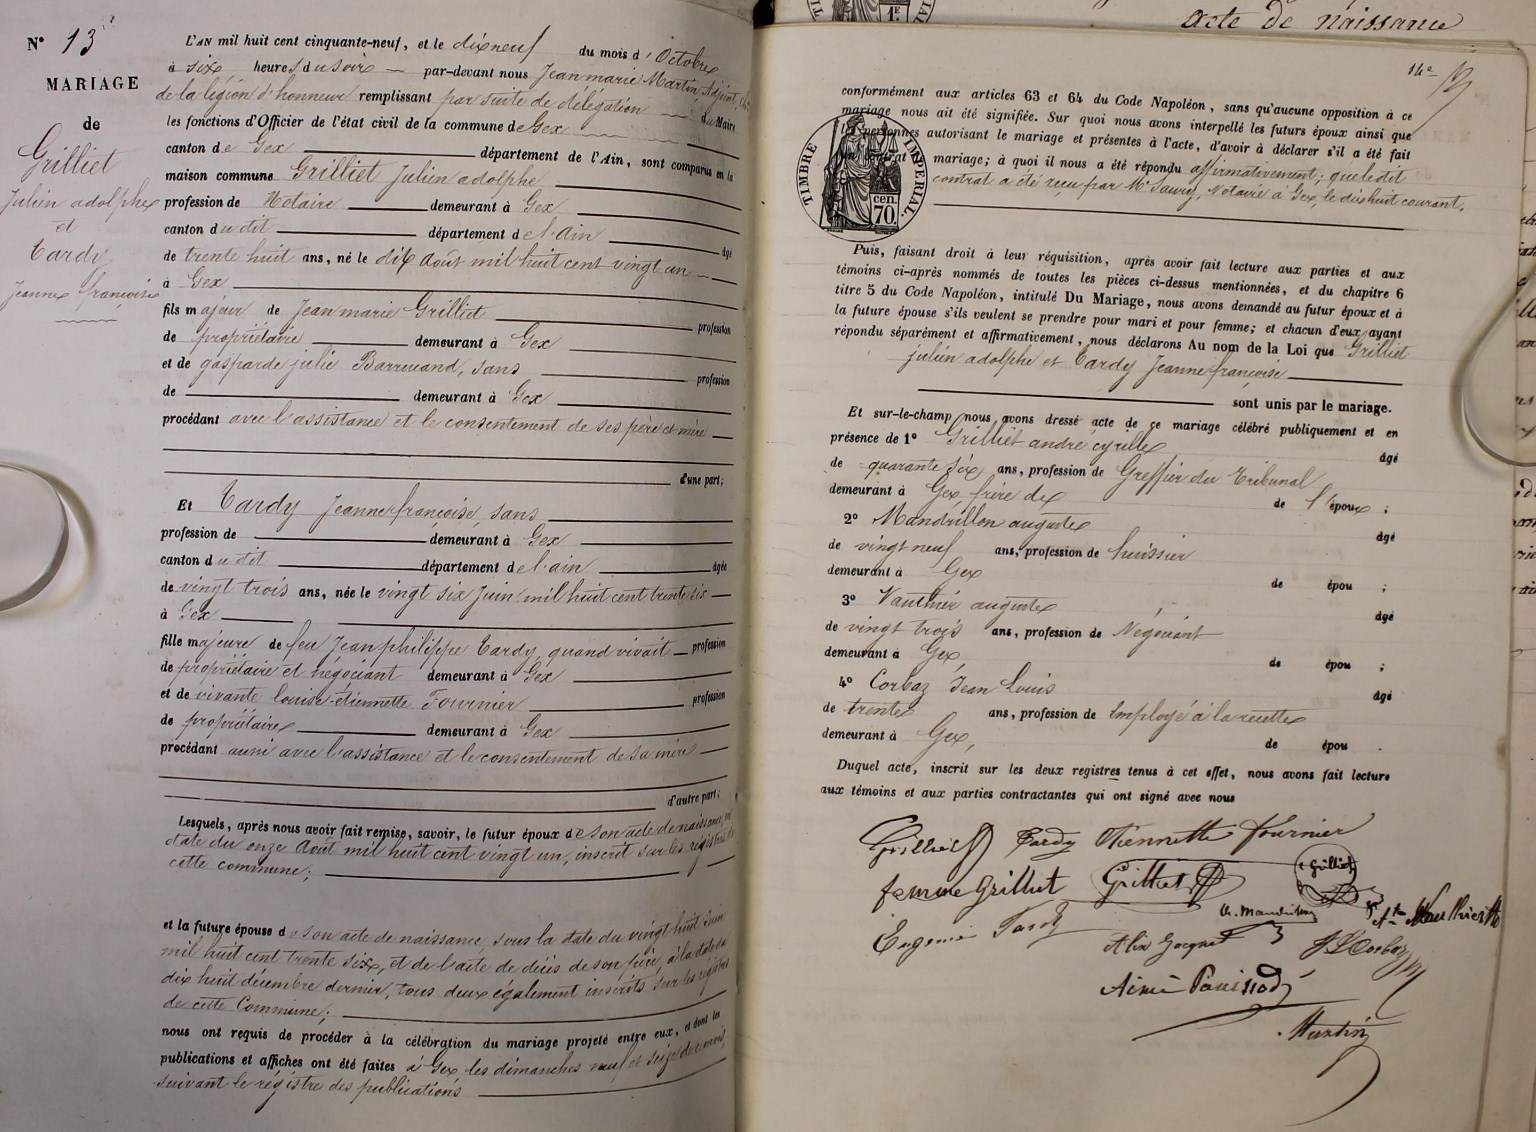 N° 13
MARIAGE
de
Grilliet
Julien adolphe
et
Tardy
Jeanne françoise
L'AN mil huit cent cinquante-neuf, et le dix neuf du mois d'Octobre
à six heures du soir par-devant nous Jean marie Martin Adjoint,
de la légion d'honneur remplissant par suite de délégation du Maire
les fonctions d'Officier de l'état civil de la commune de Gex
canton de Gex département de l'Ain, sont comparus en la
maison commune Grilliet Julien adolphe
profession de Notaire demeurant à Gex
canton du dit département de l'ain âgé
de trente huit ans, né le dix Août mil huit cent vingt un
à Gex
fils majeur de Jean marie Grilliet profession
de propriétaire demeurant à Gex
et de gasparde julie Barruand, sans profession
de demeurant à Gex
procédant avec l'assistance et le consentement de ses père et mère
d'une part;
Et Tardy Jeanne françoise, sans
profession de demeurant à Gex
canton du dit département de l'ain âgée
de vingt trois ans, née le vingt six Juin mil huit cent trente six
à Gex
fille majeure de feu Jean philippe Tardy, quand vivait profession
de propriétaire et négociant demeurant à Gex
et de vivante louise-étiennette Fournier profession
de propriétaire demeurant à Gex
procédant aussi avec l'assistance et le consentement de sa mère
d'autre part;
Lesquels, après nous avoir fait remise, savoir, le futur époux de son acte de naissance,
date du onze Août mil huit cent vingt un, inscrit sur les registres de
cette commune;
et la future épouse de son acte de naissance, sous la date du vingt huit Juin
mil huit cent trente six, et de l'acte de décès de son père, à la date du
dix huit décembre dernier, tous deux également inscrits sur les registres
de cette Commune;
nous ont requis de procéder à la célébration du mariage projeté entre eux, et dont les
publications et affiches ont été faites à Gex les dimanches neuf et seize de ce mois,
suivant le registre des publications
acte de naissance
1E.
14e
conformément aux articles 63 et 64 du Code Napoléon, sans qu'aucune opposition à ce
mariage nous ait été signifiée. Sur quoi nous avons interpellé les futurs époux ainsi que
les personnes autorisant le mariage et présentes à l'acte, d'avoir à déclarer s'il a été fait
un contrat de mariage; à quoi il nous a été répondu affirmativement; que le dit
contrat a été reçu par Me Sauvin, Notaire à Gex, le dix huit courant.
TIMBRE IMPERIAL.
cen.
70.
Puis, faisant droit à leur réquisition, après avoir fait lecture aux parties et aux
témoins ci-après nommés de toutes les pièces ci-dessus mentionnées, et du chapitre 6
titre 5 du Code Napoléon, intitulé Du Mariage, nous avons demandé au futur époux et à
la future épouse s'ils veulent se prendre pour mari et pour femme; et chacun d'eux ayant
répondu séparément et affirmativement, nous déclarons Au nom de la Loi que Grilliet
julien adolphe et Tardy Jeanne françoise
sont unis par le mariage.
Et sur-le-champ nous avons dressé acte de ce mariage célébré publiquement et en
présence de 1° Grilliet andré cyrille âgé
de quarante six ans, profession de Greffier du Tribunal
demeurant à Gex, frère de de l'époux;
2° Mandrillon auguste âgé
de vingt neuf ans, profession de huissier
demeurant à Gex de épou ;
3° Vauthier auguste âgé
de vingt trois ans, profession de Négociant
demeurant à Gex, de épou ;
4° Corbaz Jean Louis âgé
de trente ans, profession de Employé à la recette
demeurant à Gex, de épou .
Duquel acte, inscrit sur les deux registres tenus à cet effet, nous avons fait lecture
aux témoins et aux parties contractantes qui ont signé avec nous
Grilliet Tardy Etiennette fournier
femme Grilliet Grilliet Grilliet
A. Mandrillon Ate Vauthier
Eugenie Tardy Alix Jacquet JL Corbaz
Aimé Panissod
Martin